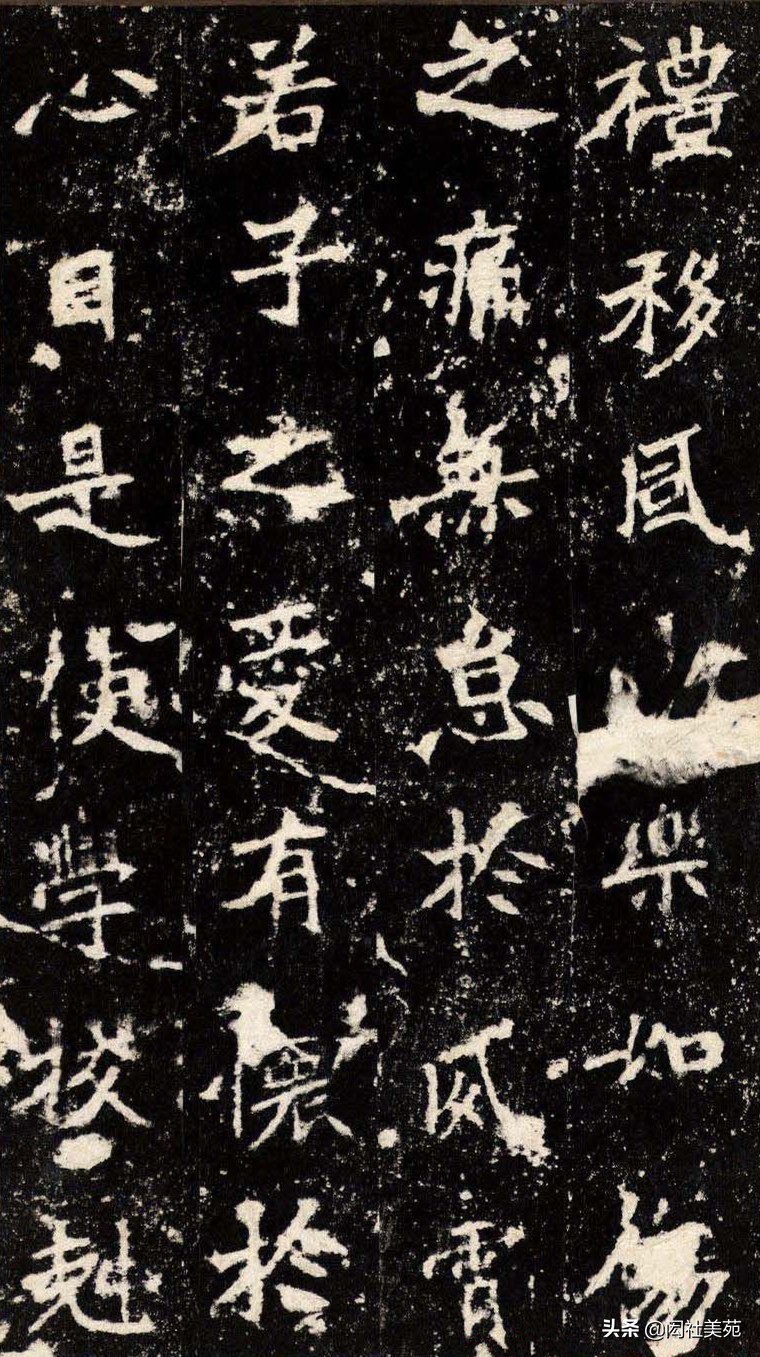 禮移風樂如傷
之痛無怠於夙霄
若子之愛有懷於
心目是使學校剋
头条 @闳社美苑